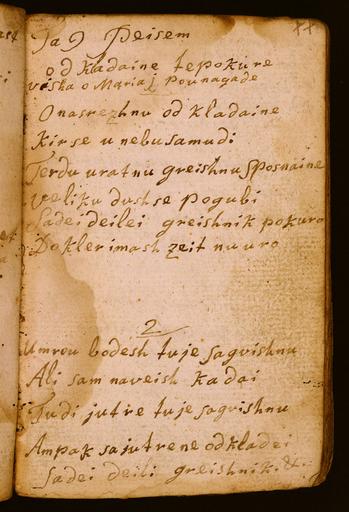 Ta 9 Peisem
od kadaine te pokure
viska o Mariaj Pounagade
O nasrezhnu od kladaine
kir se u nebu samudi
Terdu uratnu greishnu Sposnaine
veliku dush se pogubi
Sadei deilei greishnik pokuro
Dokler imash zeit nu uro
2
Umrou bodesh tu je sagvishnu
Ali sam naveish kadai
Tudi jutre tu je sagvishnu
Ampak sa jutrene odkladei
Sadei deili greishnik. &.